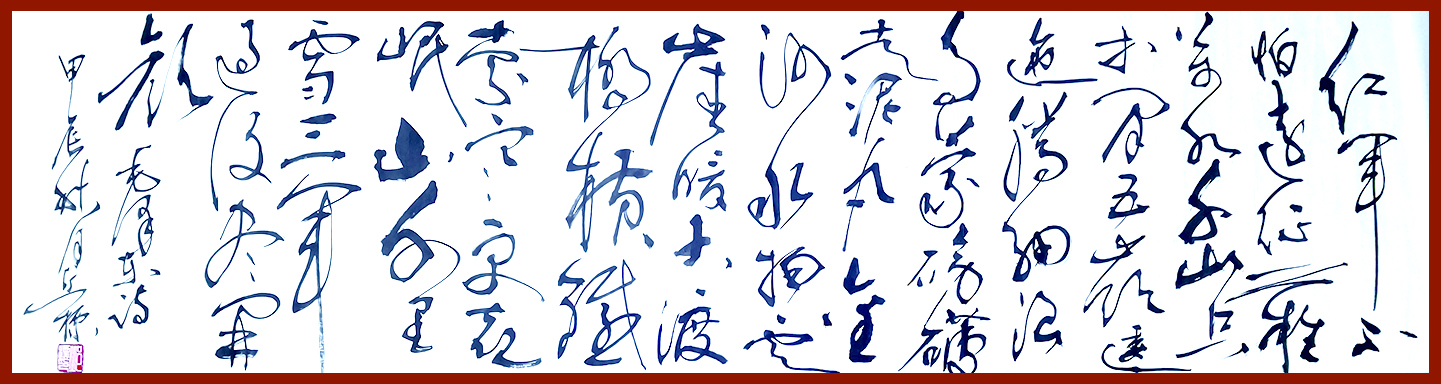 红军不
怕远征难
万水千山只
等闲五岭逶
迤腾细浪
乌蒙磅礴
走泥丸金
沙水拍云
崖暖大渡
桥横铁
索寒更喜
岷山千里
雪三军
过后尽开
颜 毛泽东诗
甲辰秋月